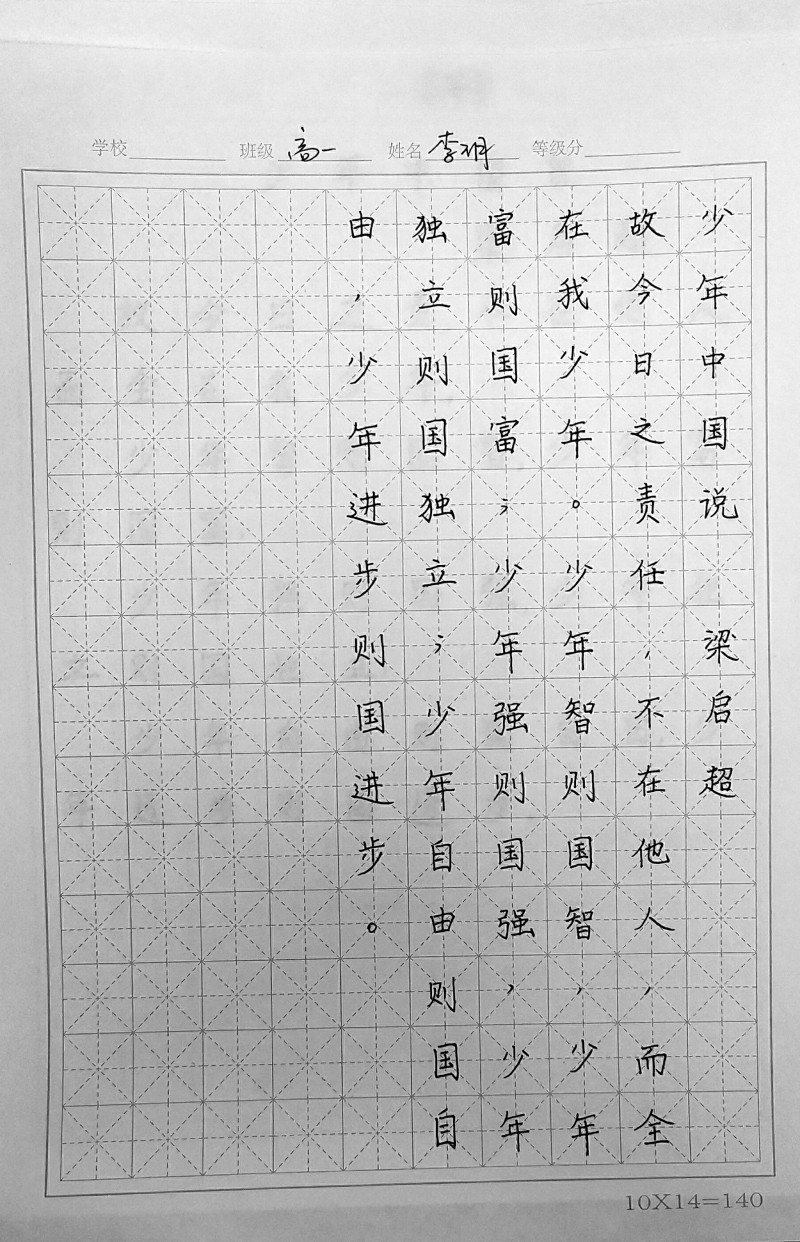 学校 班级 高一 姓名 李明 等级分
少年中国说 梁启超
故今日之责任,不在他人,而全
在我少年。少年智则国智,少年
富则国富;少年强则国强,少年
独立则国独立;少年自由则国自
由,少年进步则国进步。
10X14=140